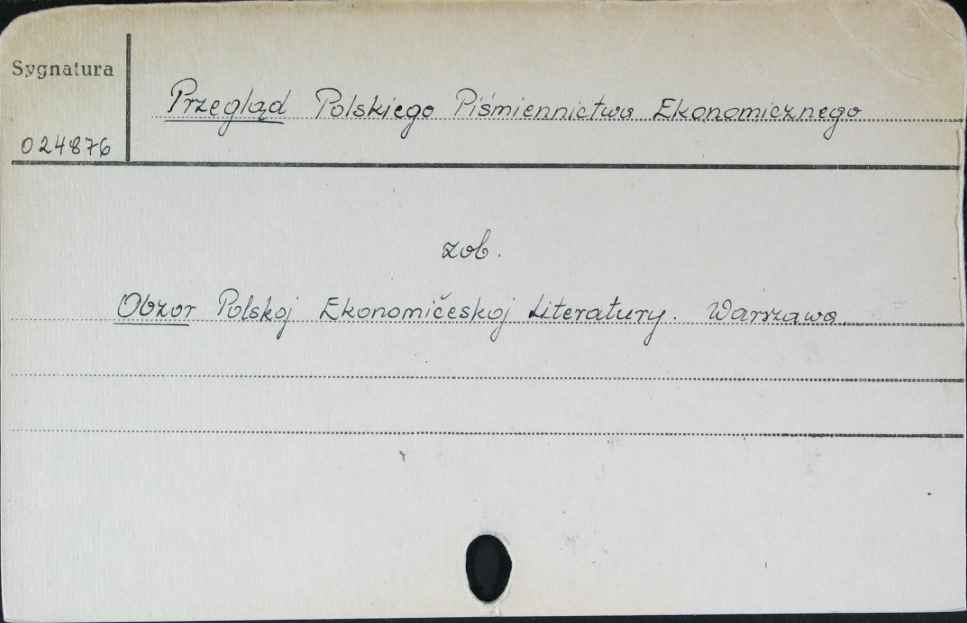 Sygnatura
Przegląd Polskiego Piśmiennictwa Ekonomicznego
024876
zob.
Obzor Polskoj Ekonomičeskoj Literatury. Warszawa.